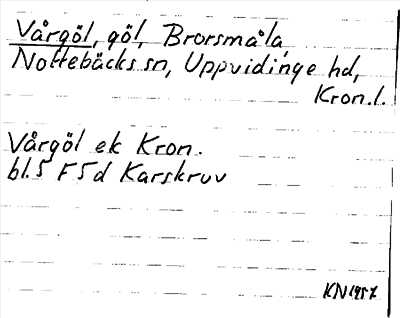 Vårgöl, göl, Brorsmåla,
Nottebäcks sn, Uppvidinge hd,
Kron.l.
Vårgöl ek Kron.
bl.5 F5d Karskruv
KN 1957